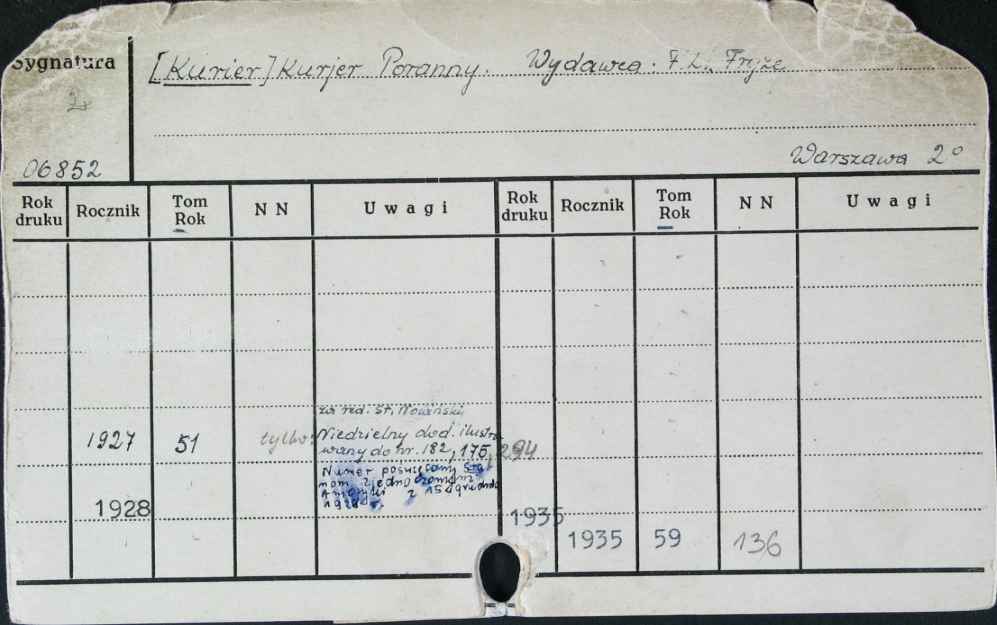 Sygnatura
[Kurier] Kurjer Poranny. Wydawca: F. L. Fryze
2
06852
Warszawa 2°
Rok druku Rocznik Tom Rok N N Uwagi Rok druku Rocznik Tom Rok N N Uwagi
za red. St. Nowiński
1927 51 tylko: Niedzielny dod. ilustro
wany do nr. 182, 175, 294
Numer poświęcony Sta
nom Zjednoczonym
Ameryki z 15 grudnia
1928 r.
1928
1935
1935 59 136